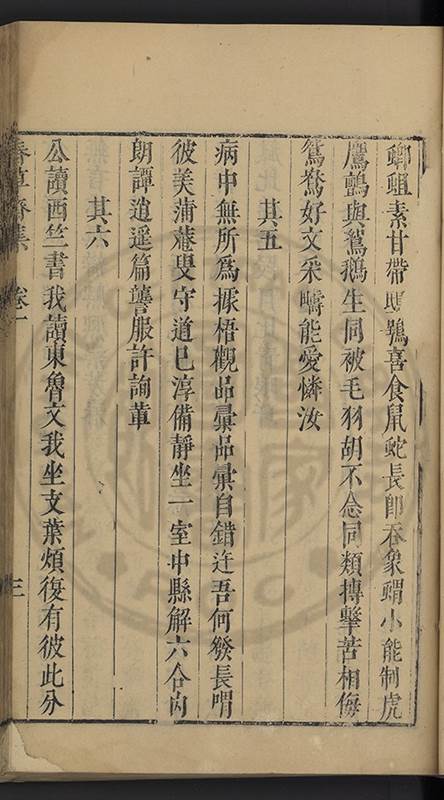 蝍蛆素甘帶鴟鴞喜食鼠蛇長卽吞象蝟小能制虎
鷹鸇與鴛鵝生同被毛羽胡不念同類摶擊苦相侮
鴛鴦好文采疇能愛憐汝
其五
病中無所爲據梧觀品彙品彙自錯迕吾何發長喟
彼美蒲菴叟守道已淳備靜坐一室中縣解六合內
朗譚逍遥篇讋服許詢輩
其六
公讀西竺書我讀東魯文我坐支葉煩復有彼此分
春草齋集 卷一 三